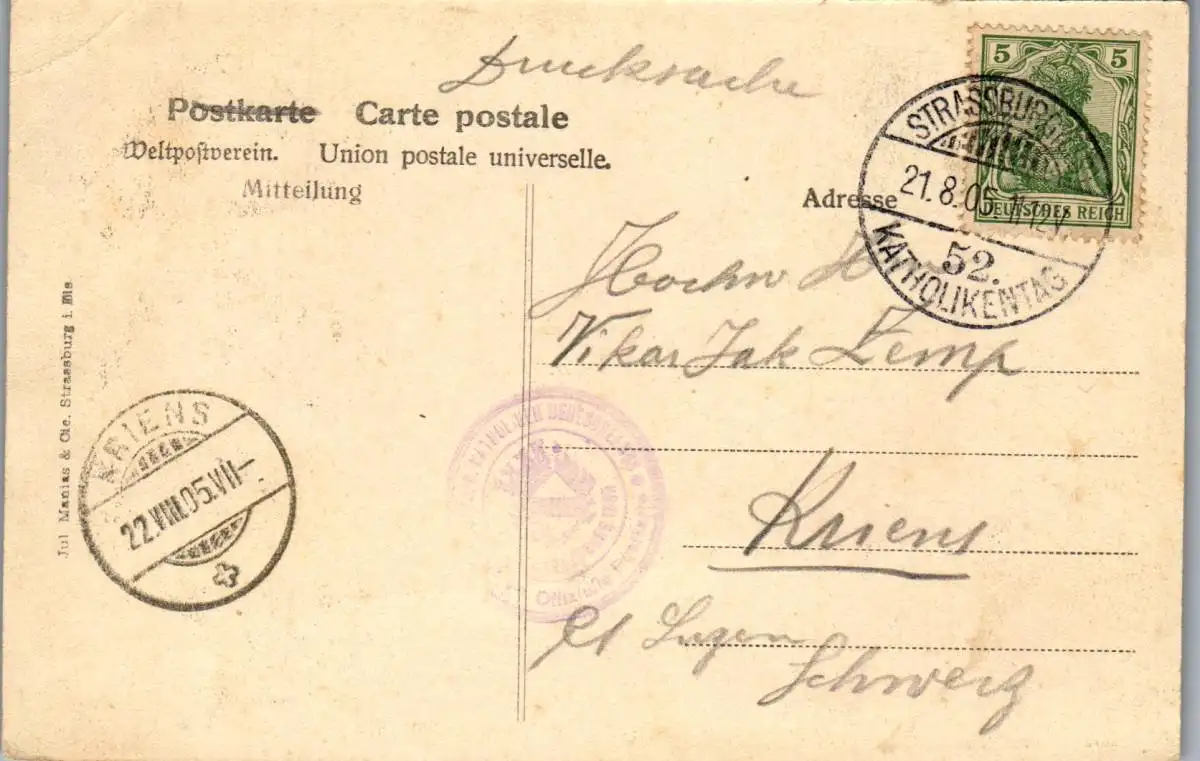 Drucksache
Postkarte Carte postale
Weltpostverein. Union postale universelle.
Mitteilung
Adresse
5 5
DEUTSCHES REICH
STRASSBURG
21.8.05. 11-12V
52.
KATHOLIKENTAG
Hochw H
Vikar Jak Zemp
Kriens
Ct Luzern
Schweiz
KRIENS
22.VIII.05.VII—
Jul Manias & Cie. Strassburg i. Els
KATHOLIKEN DEUTSCHLANDS
Offizielle